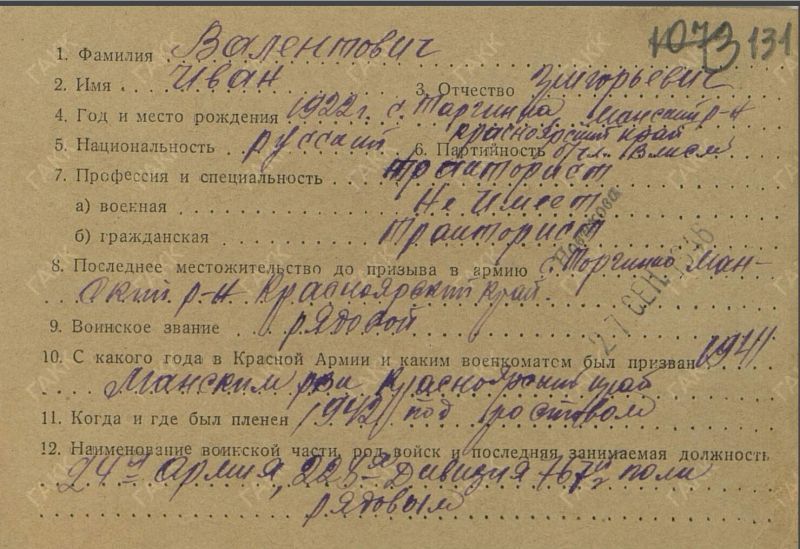 1073 131
1. Фамилия Валентович
2. Имя Иван 3. Отчество Григорьевич
4. Год и место рождения 1922 г. с. Торгинка Манский р-н
Красноярский край
5. Национальность русский 6. Партийность б/чл. ВЛКСМ
7. Профессия и специальность тракторист
а) военная Не имеет
б) гражданская тракторист
8. Последнее местожительство до призыва в армию с. Торгинка Ман-
ский р-н Красноярский край.
9. Воинское звание рядовой
27 СЕН 1946
10. С какого года в Красной Армии и каким военкоматом был призван 1941
Манским рвк Красноярский край
11. Когда и где был пленен 1942 под Ростовом
12. Наименование воинской части, род войск и последняя занимаемая должность
24-я Армия, 228-я Дивизия 767-й полк
рядовым
ГАКК